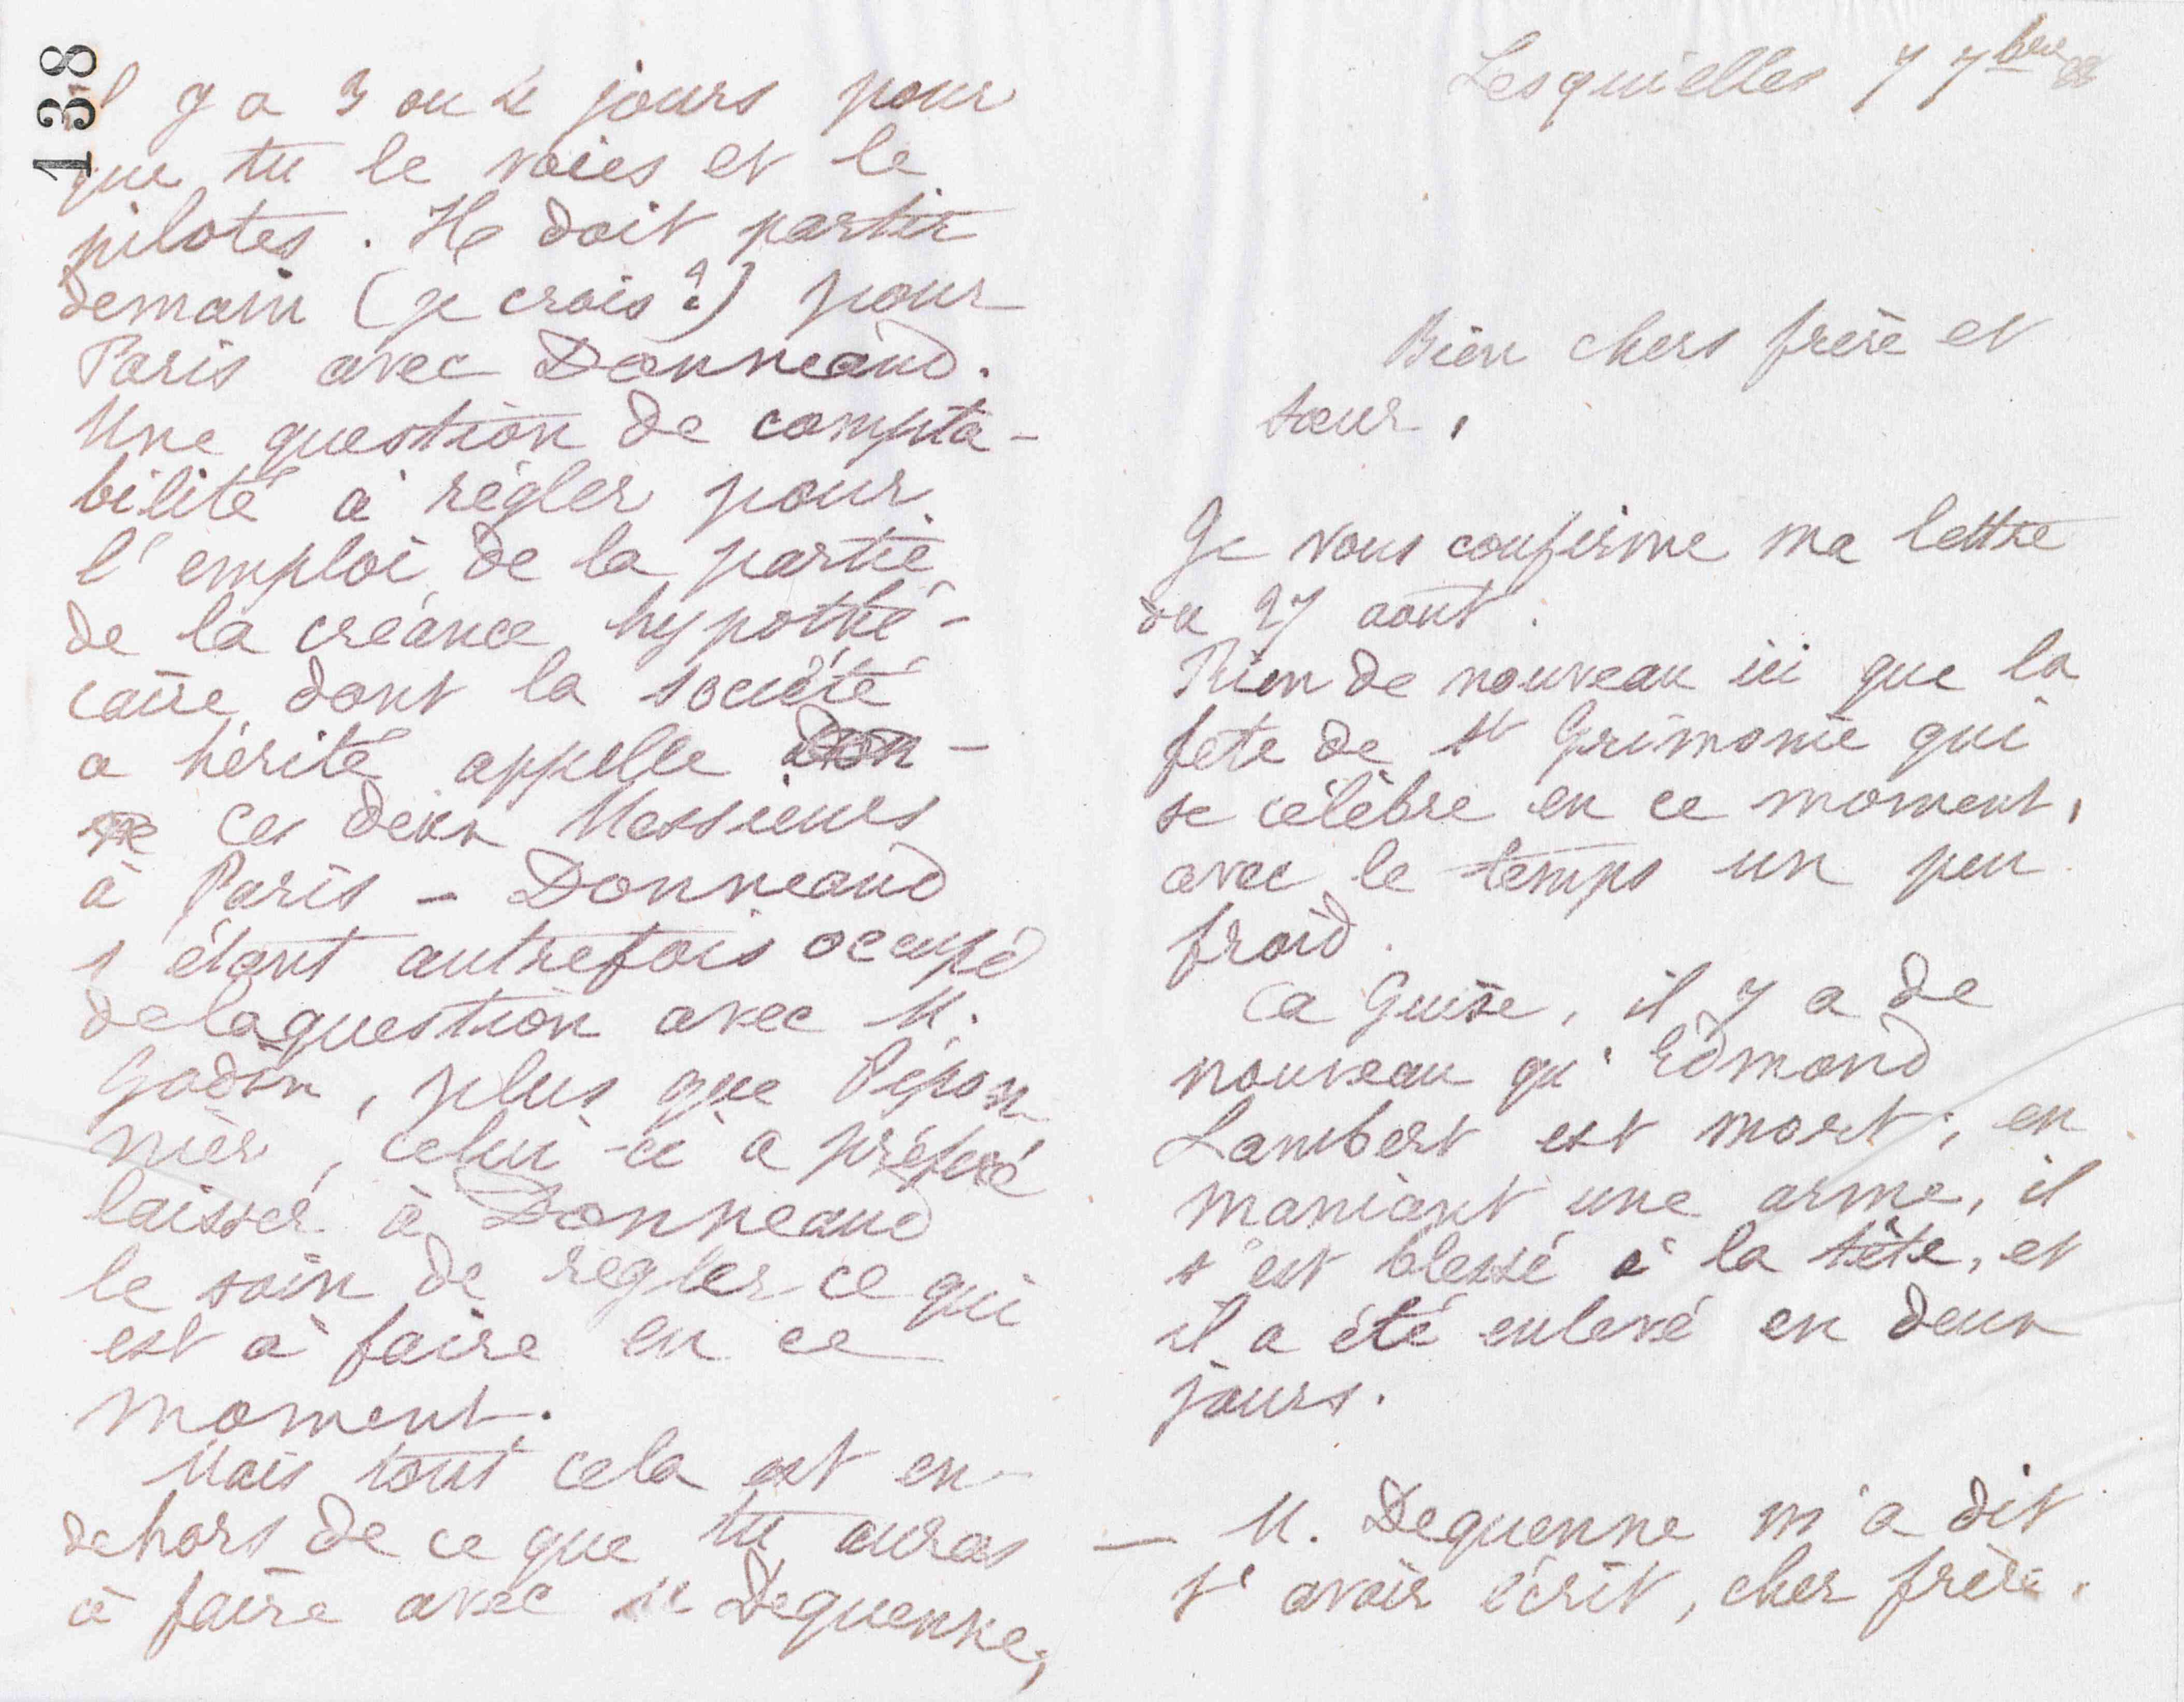 Lesquielles 7 7bre 88
Bien chers frère et
sœur,
Je vous confirme ma lettre
du 27 août.
Rien de nouveau ici que la
fete de St Grimonie qui
se célèbre en ce moment,
avec le temps un peu
froid.
Ca Guise, il y a de
nouveau qu'Edmond
Lambert est mort; en
maniant une arme, il
s'est blessé à la tête, et
il a été enlevé en deux
jours.
— M. Dequenne m'a dit
t'avoir écrit, cher frère,
138
il y a 3 ou 4 jours pour
que tu le voies et le
pilotes. Il doit partir
demain (je crois?) pour
Paris avec Donneaud.
Une question de compta-
bilité à régler pour
l'emploi de la partie
de la créance hypothé-
caire dont la société
a hérité appelle Don-
ces deux Messieurs
à Paris - Donneaud
s'étant autrefois occupé
de la question avec M.
Godin, plus que Pépon-
nier, celui-ci a préféré
laisser à Donneaud
le soin de regler ce qui
est à faire en ce
moment.
Mais tout cela est en
dehors de ce que tu auras
à faire avec M Dequenne,